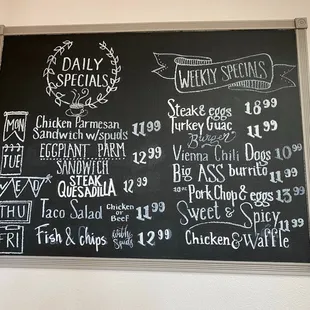 DAILY
SPECIALS
MON
Chicken Parmesan
Sandwich w/spuds 11.99
TUE
EGGPLANT PARM
SANDWICH 12.99
WED
STEAK
QUESADILLA 12.99
THU
Taco Salad Chicken or Beef 11.99
FRI
Fish & Chips with Spuds 12.99
WEEKLY SPECIALS
Steak & eggs 18.99
Turkey Guac
Burger 11.99
Vienna Chili Dogs 10.99
Big ASS burrito 11.99
10oz Pork Chop & eggs 13.99
Sweet & Spicy
Chicken & Waffle 11.99